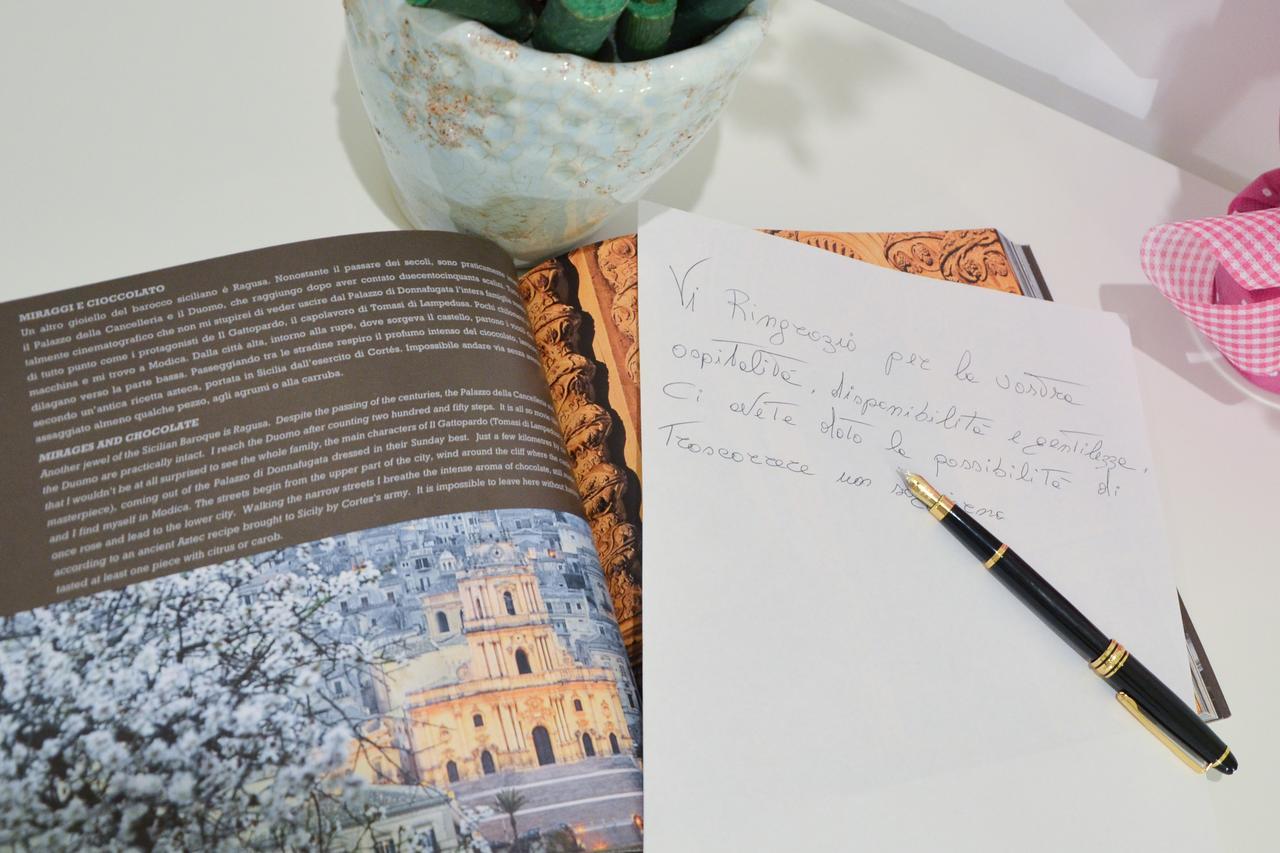 MIRAGGI E CIOCCOLATO
Un altro gioiello del barocco siciliano è Ragusa. Nonostante il passare dei secoli, sono praticamente
il Palazzo della Cancelleria e il Duomo, che raggiungo dopo aver contato duecentocinquanta scalini.
talmente cinematografico che non mi stupirei di veder uscire dal Palazzo di Donnafugata l'intera famiglia
di tutto punto come i protagonisti de Il Gattopardo, il capolavoro di Tomasi di Lampedusa. Pochi chilometri
macchina e mi trovo a Modica. Dalla città alta, intorno alla rupe, dove sorgeva il castello, partono i
dilagano verso la parte bassa. Passeggiando tra le stradine respiro il profumo intenso del cioccolato,
secondo un'antica ricetta azteca, portata in Sicilia dall'esercito di Cortés. Impossibile andare via senza
assaggiato almeno qualche pezzo, agli agrumi o alla carruba.
MIRAGES AND CHOCOLATE
Another jewel of the Sicilian Baroque is Ragusa. Despite the passing of the centuries, the Palazzo della Cancelleria
the Duomo are practically intact. I reach the Duomo after counting two hundred and fifty steps. It is all so
that I wouldn't be at all surprised to see the whole family, the main characters of Il Gattopardo (Tomasi di Lampedusa
masterpiece), coming out of the Palazzo di Donnafugata dressed in their Sunday best. Just a few kilometres
and I find myself in Modica. The streets begin from the upper part of the city, wind around the cliff where the
once rose and lead to the lower city. Walking the narrow streets I breathe the intense aroma of chocolate, still
according to an ancient Aztec recipe brought to Sicily by Cortes's army. It is impossible to leave here without
tasted at least one piece with citrus or carob.
Vi Ringrazio per la vostra
ospitalità, disponibilità e gentilezza.
Ci avete dato la possibilità di
Trascorrere una